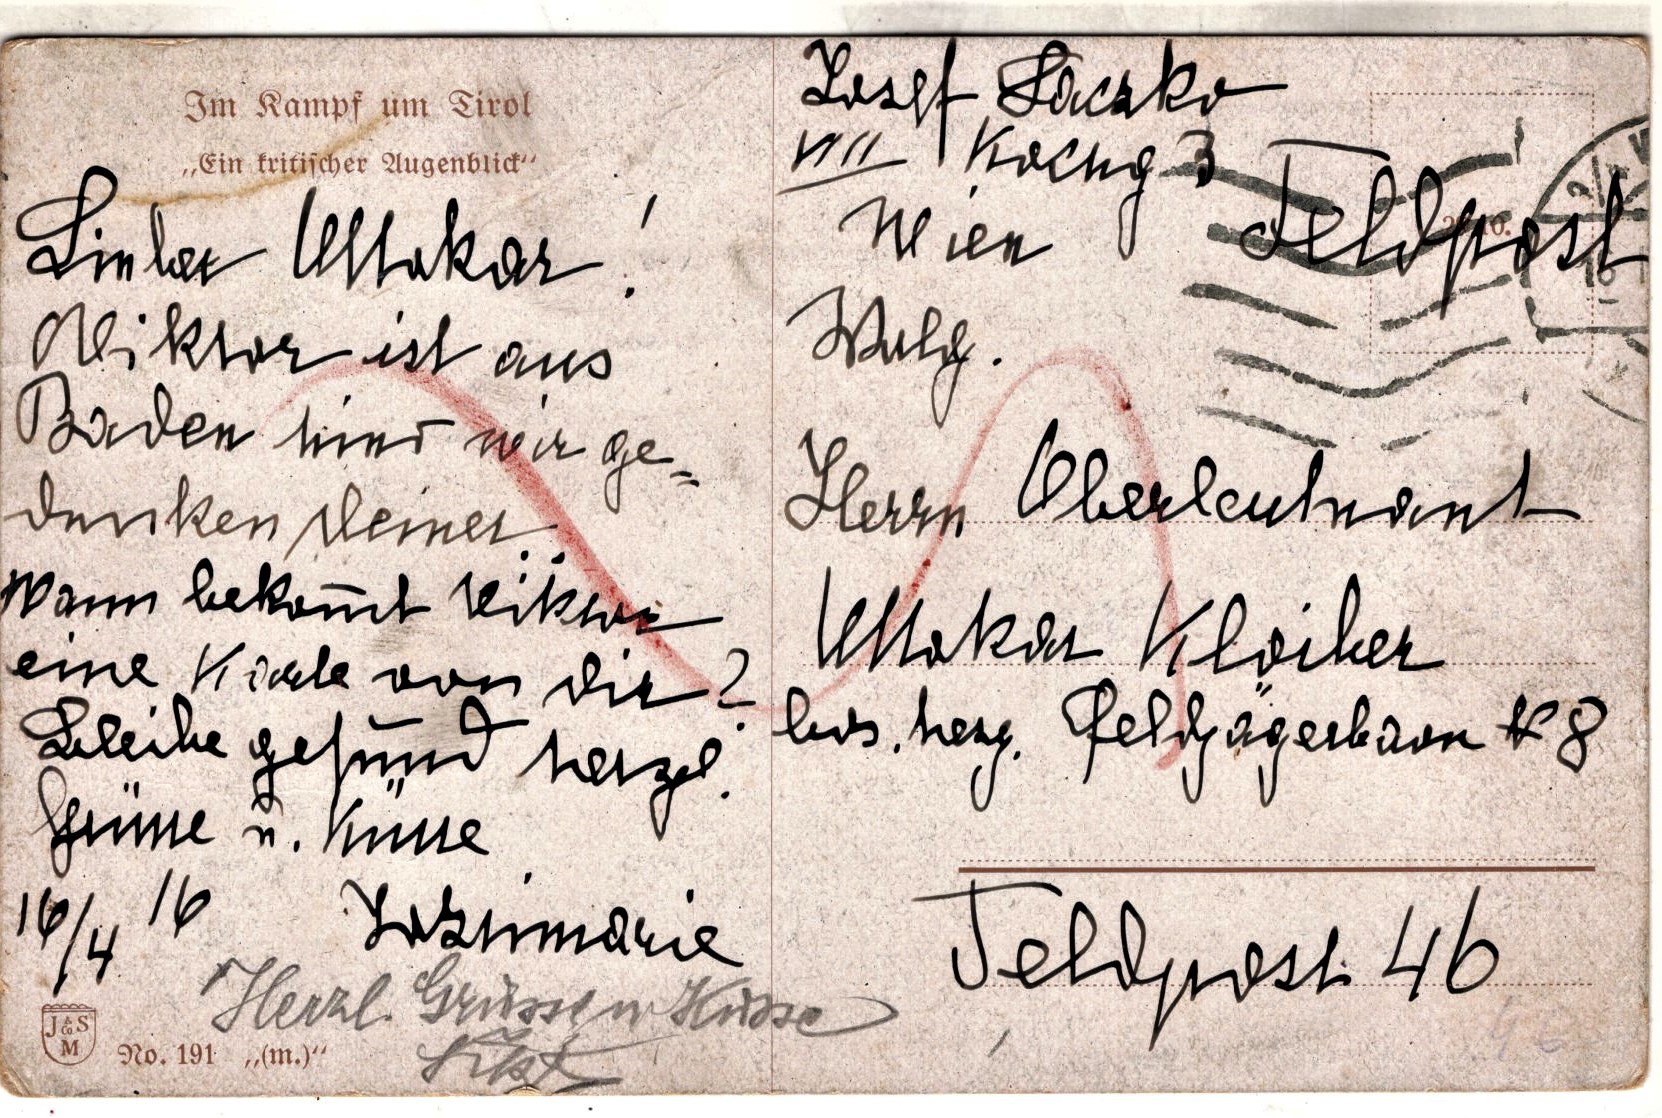 Im Kampf um Tirol
„Ein kritischer Augenblick“
Lieber Ottokar!
Viktor ist aus
Baden hind wir ge=
denken deiner
Wann bekom̅t Viktor
eine Karte von dir?
Bleibe gesund herzl.
Grüsse u. Küsse
16/4 16
Herzl. Grüsse u Küsse
No. 191 „(m.)“
J & Co S
M
Josef Laczko
VII
3
Wien
Feldpost
Herrn Oberleutnant
Ottokar Kloiber
bos. herzg. Feldjägerbaon № 8
Feldpost 46